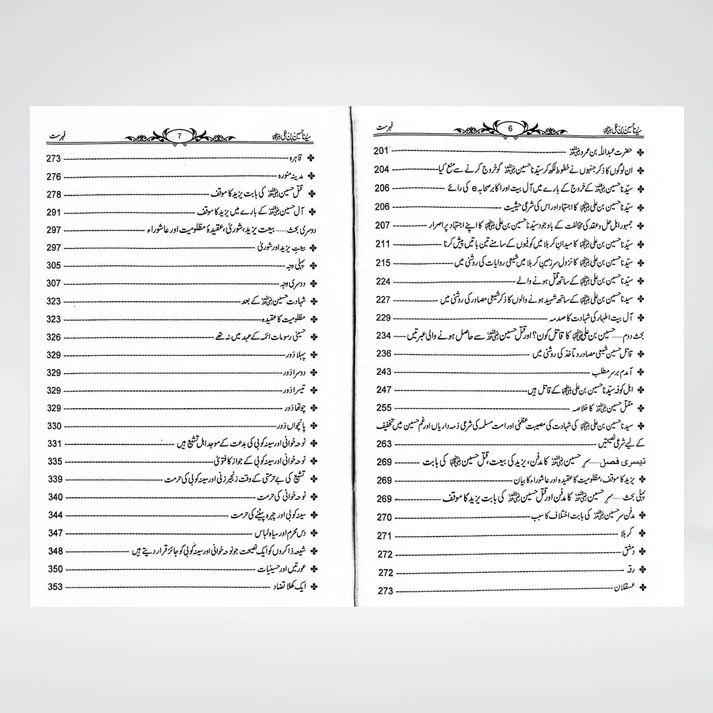 سیّدنا حسین بن علی ﷠ 6 فہرست
حضرت عبداللہ بن عمرو ﷠ 201
ان لوگوں کا ذکر جنہوں نے خطوط لکھ کر سیّدنا حسین ﷠ کو خروج کرنے سے منع کیا 204
سیّدنا حسین ﷠ کے خروج کے بارے میں آل بیت اور اکابر صحابہ e کی رائے 206
سیّدنا حسین بن علی ﷠ کا اجتہاد اور اس کی شرعی حیثیت 206
جمہور اہل حل و عقد کی مخالفت کے باوجود سیّدنا حسین بن علی ﷠ کا اپنے اجتہاد پر اصرار 207
سیّدنا حسین بن علی ﷠ کا میدانِ کربلا میں کوفیوں کے سامنے تین باتیں پیش کرنا 211
سیّدنا حسین بن علی ﷠ کا نزول سرزمینِ کربلا میں شیعی روایات کی روشنی میں 215
سیّدنا حسین بن علی ﷠ کے ساتھ قتل ہونے والے 224
سیدنا حسین بن علی ﷠ کے ساتھ شہید ہونے والوں کا ذکر شیعی مصادر کی روشنی میں 227
آل بیت اطہار کی شہادت کا صدمہ 229
بحث دوم..... حسین بن علی ﷠ کا قاتل کون؟ اور قتل حسین ﷠ سے حاصل ہونے والی عبرتیں 234
قاتل حسین شیعی مصادر و مآخذ کی روشنی میں 236
آمدم برسر مطلب 243
اہل کوفہ سیّدنا حسین بن علی ﷠ کے قاتل ہیں 247
مقتل حسین ﷠ کا خلاصہ 255
سیّدنا حسین بن علی ﷠ کی شہادت کی مصیبت عظمیٰ اور امت مسلمہ کی شرعی ذمہ داریاں اور غم حسین میں تخفیف
کے لیے شرعی نصیحتیں 263
تیسری فصل..... سرِ حسین ﷠ کا مدفن، یزید کی بیعت، قتل حسین ﷠ کی بابت 269
یزید کا موقف، مظلومیت کا عقیدہ اور عاشوراء کا بیان 269
پہلی بحث..... سرِ حسین ﷠ کا مدفن اور قتل حسین ﷠ کی بابت یزید کا موقف 269
مدفن سر حسین ﷠ کی بابت اختلاف کا سبب 270
کربلا 271
دمشق 272
رقہ 272
عسقلان 273
سیّدنا حسین بن علی ﷠ 7 فہرست
قاہرہ 273
مدینہ منورہ 276
قتل حسین ﷠ کی بابت یزید کا موقف 278
آل حسین ﷠ کے بارے میں یزید کا موقف 291
دوسری بحث..... بیعت یزید، شوریٰ، عقیدۂ مظلومیت اور عاشوراء 297
بیعتِ یزید اور شوریٰ 297
پہلی وجہ 305
دوسری وجہ 307
شہادت حسین ﷠ کے بعد 323
مظلومیت کا عقیدہ 323
حسینی رسومات ائمہ کے عہد میں نہ تھے 326
پہلا دَور 329
دوسرا دَور 329
تیسرا دَور 329
چوتھا دَور 329
پانچواں دَور 330
نوحہ خوانی اور سینہ کوبی کی بدعت کے موجد اہل تشیع ہیں 331
نوحہ خوانی اور سینہ کوبی کے جواز کا فتویٰ 335
تشیع کی بے حرمتی کے وقت زنجیر زنی اور سینہ کوبی کی حرمت 339
نوحہ خوانی کی حرمت 340
سینہ کوبی اور چہرہ پیٹنے کی حرمت 344
دس محرم اور سیاہ لباس 347
شیعہ ذاکروں کو ایک نصیحت جو نوحہ خوانی اور سینہ کوبی کو جائز قرار دیتے ہیں 348
عورتیں اور حسینیات 350
ایک کھلا تضاد 353